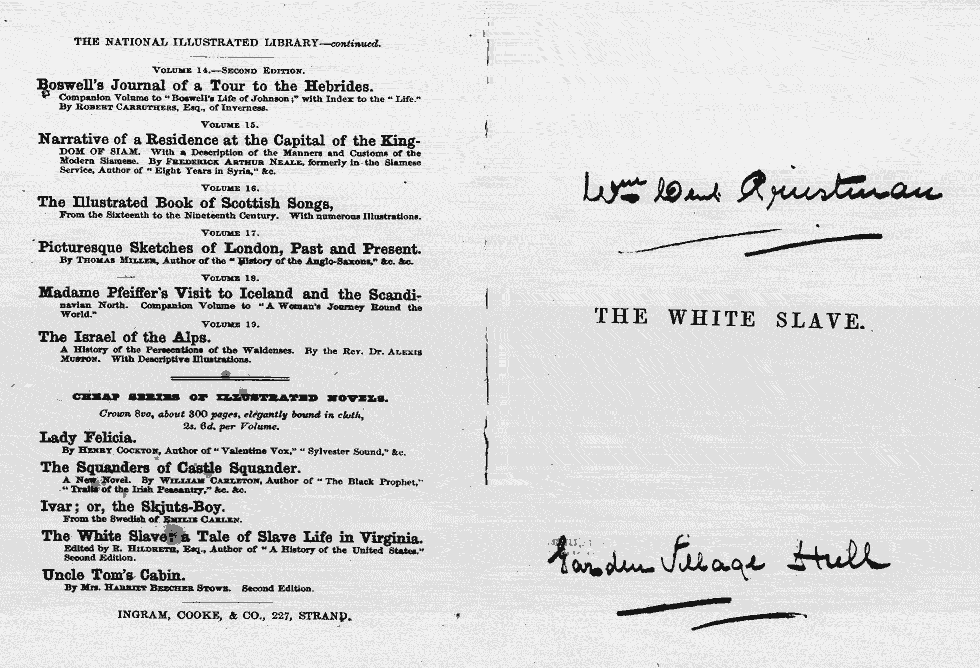 THE NATIONAL ILLUSTRATED LIBRARY—continued.
VOLUME 14.—SECOND EDITION.
Boswell's Journal of a Tour to the Hebrides.
Companion Volume to "Boswell's Life of Johnson;" with Index to the "Life."
By ROBERT CARRUTHERS, Esq., of Inverness.
VOLUME 15.
Narrative of a Residence at the Capital of the King-
DOM OF SIAM. With a Description of the Manners and Customs of the
Modern Siamese. By FREDERICK ARTHUR NEALE, formerly in the Siamese
Service, Author of "Eight Years in Syria," &c.
VOLUME 16.
The Illustrated Book of Scottish Songs,
From the Sixteenth to the Nineteenth Century. With numerous Illustrations.
VOLUME 17.
Picturesque Sketches of London, Past and Present.
By THOMAS MILLER, Author of the "History of the Anglo-Saxons," &c. &c.
VOLUME 18.
Madame Pfeiffer's Visit to Iceland and the Scandi-
navian North. Companion Volume to "A Woman's Journey Round the
World."
VOLUME 19.
The Israel of the Alps.
A History of the Persecutions of the Waldenses. By the Rev. Dr. ALEXIS
MUSTON. With Descriptive Illustrations.
CHEAP SERIES OF ILLUSTRATED NOVELS.
Crown 8vo, about 300 pages, elegantly bound in cloth,
2s. 6d. per Volume.
Lady Felicia.
By HENRY COCKTON, Author of "Valentine Vox," "Sylvester Sound," &c.
The Squanders of Castle Squander.
A New Novel. By WILLIAM CARLETON, Author of "The Black Prophet,"
"Traits of the Irish Peasantry," &c. &c.
Ivar; or, the Skjuts-Boy.
From the Swedish of EMILIE CARLEN.
The White Slave; a Tale of Slave Life in Virginia.
Edited by R. HILDRETH, Esq., Author of "A History of the United States."
Second Edition.
Uncle Tom's Cabin.
By Mrs. HARRIET BEECHER STOWE. Second Edition.
INGRAM, COOKE, & CO., 227, STRAND.
Wm Priestman
THE WHITE SLAVE.
Garden Village Hull